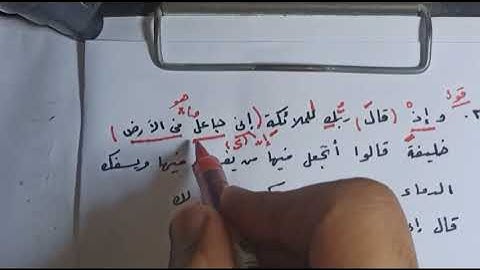 قول
هو
٣. و إذ (قال ربك للملائكة (إني جاعل في الأرض)
خليفة قالوا أتجعل فيها من فيها ويسفك
الدماء لك
قال